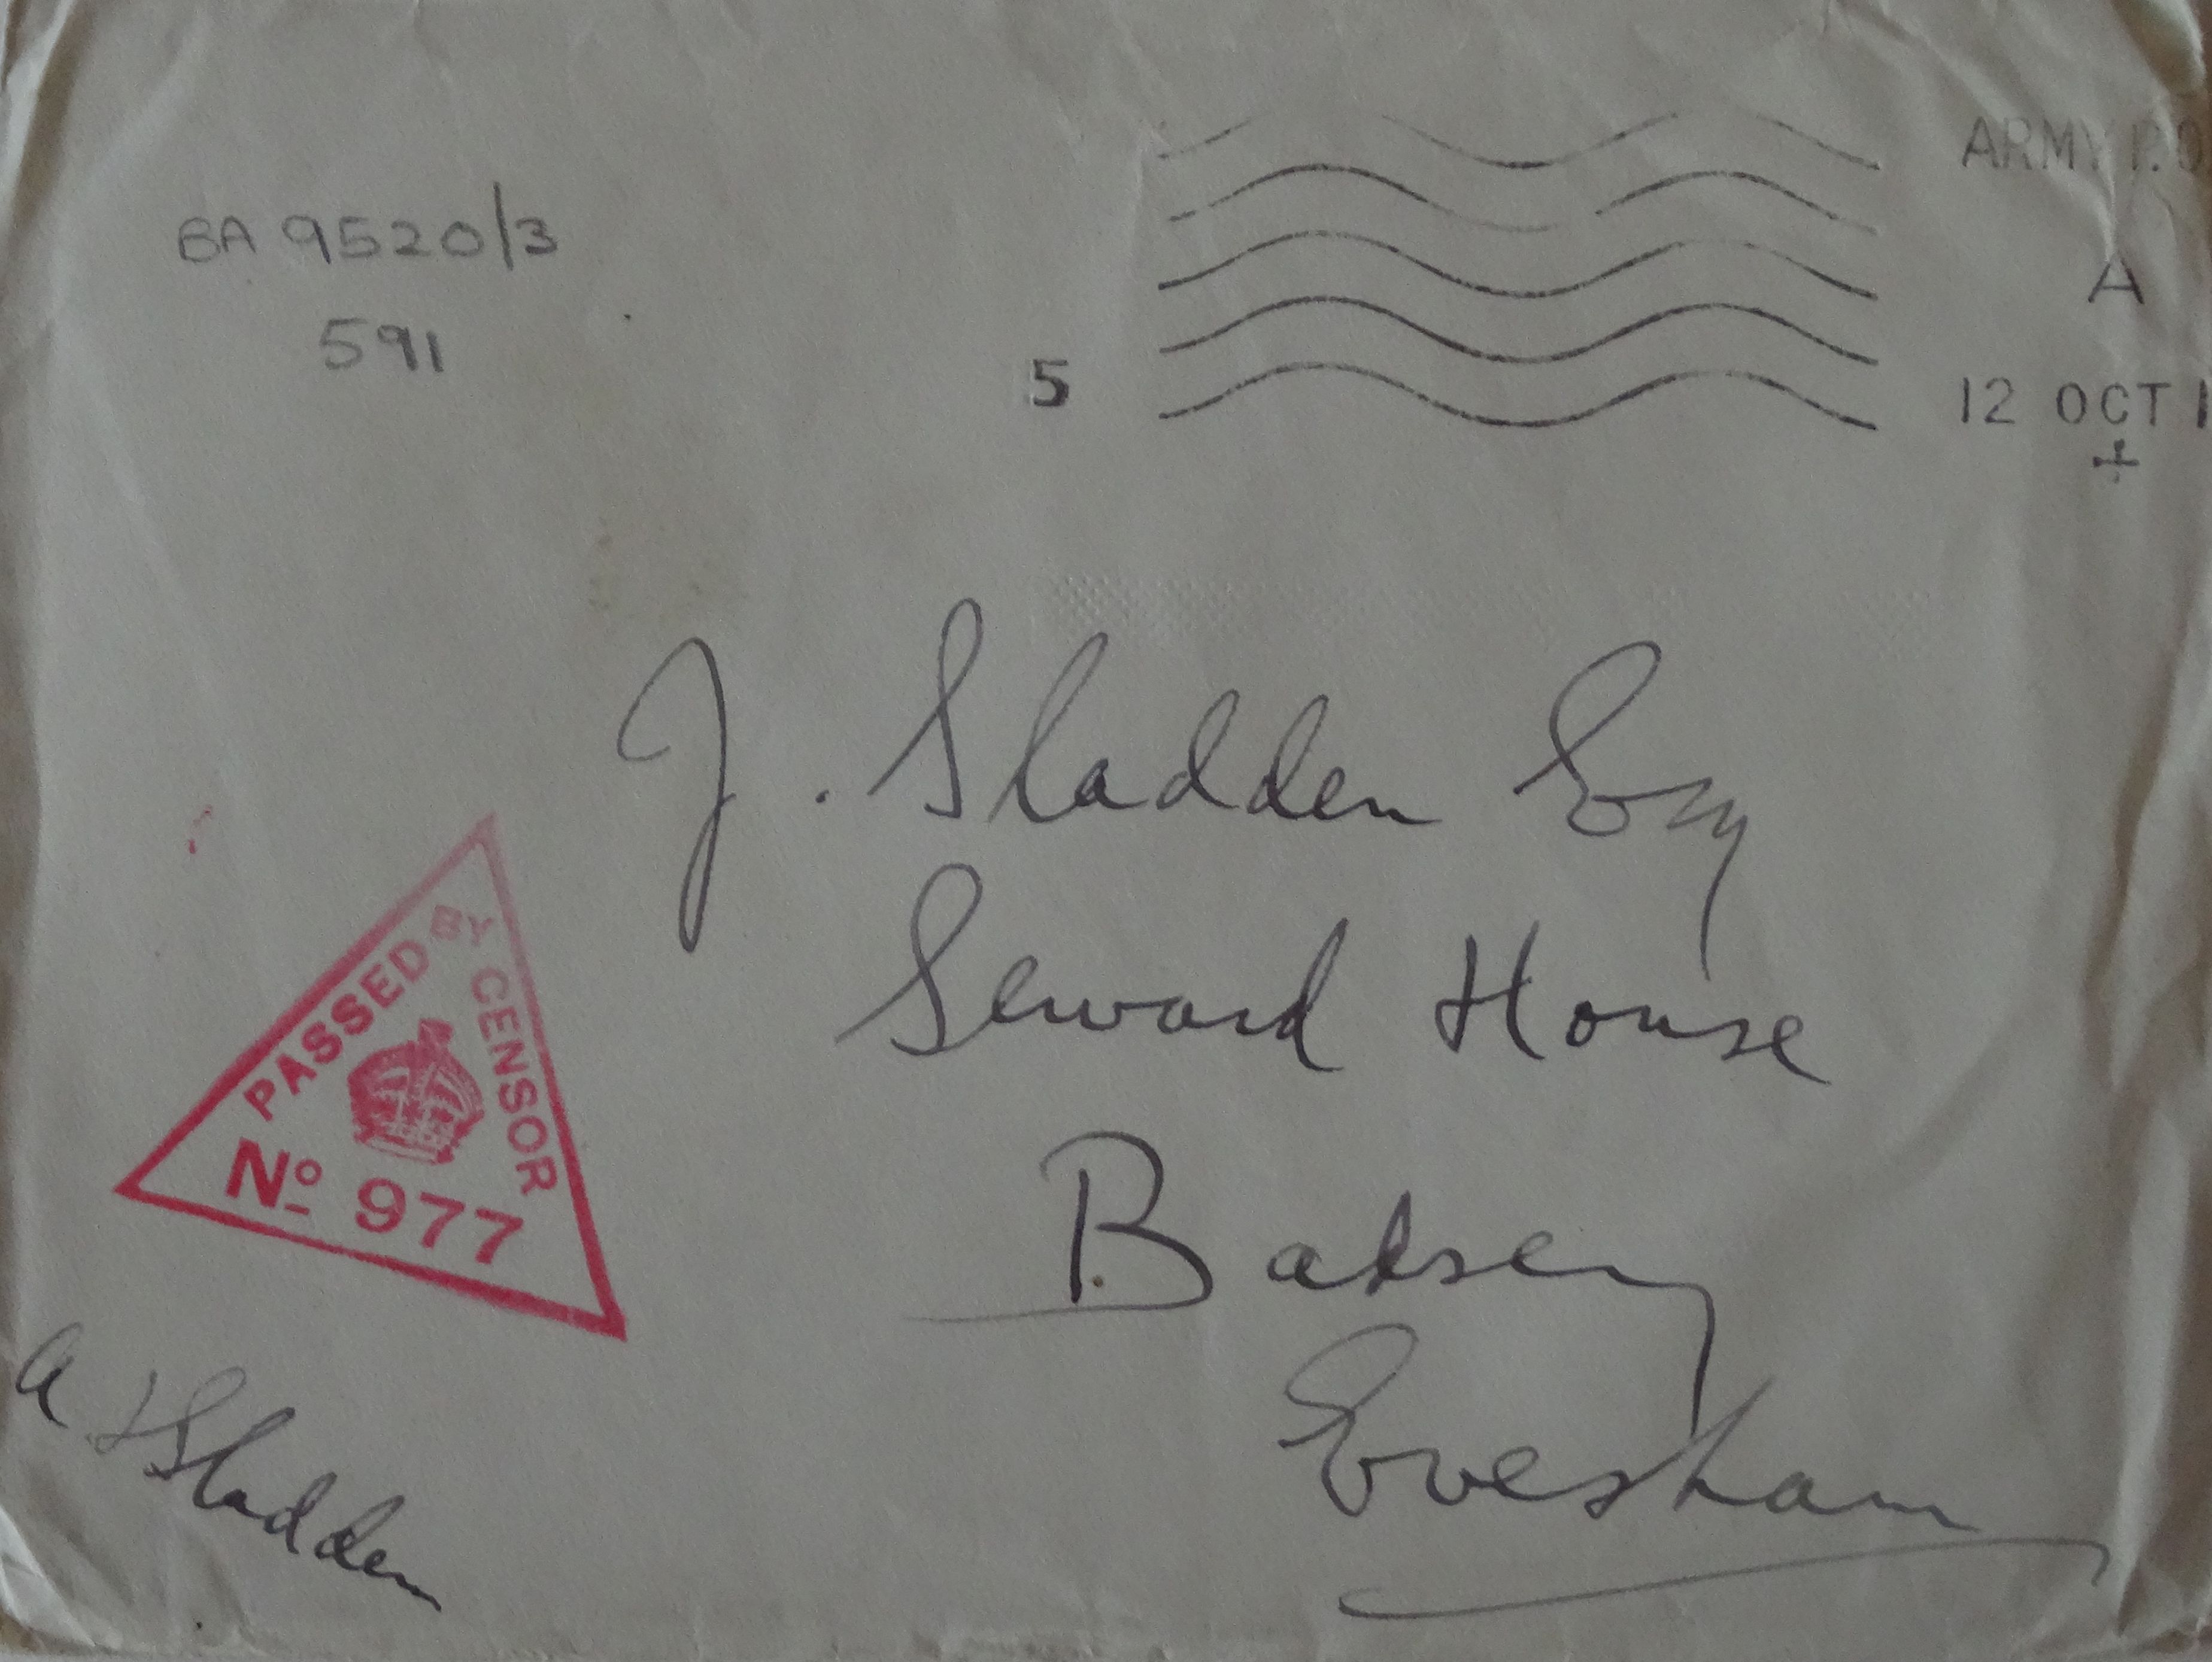 ARMY P.O
BA 9520/3
A
591
5
12 OCT 1
J. Sladden Esq
Seward House
Badsey
Evesham
PASSED BY CENSOR
No 977
A F Sladden